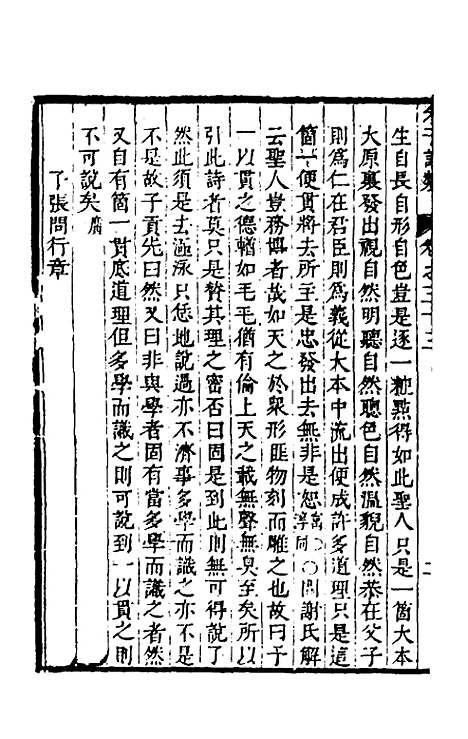 生自長自形自色豈是逐一粧點得如此聖人只是一箇大本
大原裏發出視自然明聽自然聰色自然溫貌自然恭在父子
則爲仁在君臣則爲義從大本中流出便成許多道理只是這
箇一便貫將去所主是忠發出去無非是恕 淳同○問謝氏解
云聖人豈務博者哉如天之於衆形匪物刻而雕之也故曰予
一以貫之德輶如毛毛猶有倫上天之載無聲無臭至矣所以
引此詩者莫只是贊其理之密否曰固是到此則無可得說了
然此須是去涵泳只恁地說過亦不濟事多學而識之亦不是
不是故子貢先曰然又曰非與學者固有當多學而識之者然
又自有箇一貫底道理但多學而識之則可說到一以貫之則
不可說矣
子張問行章